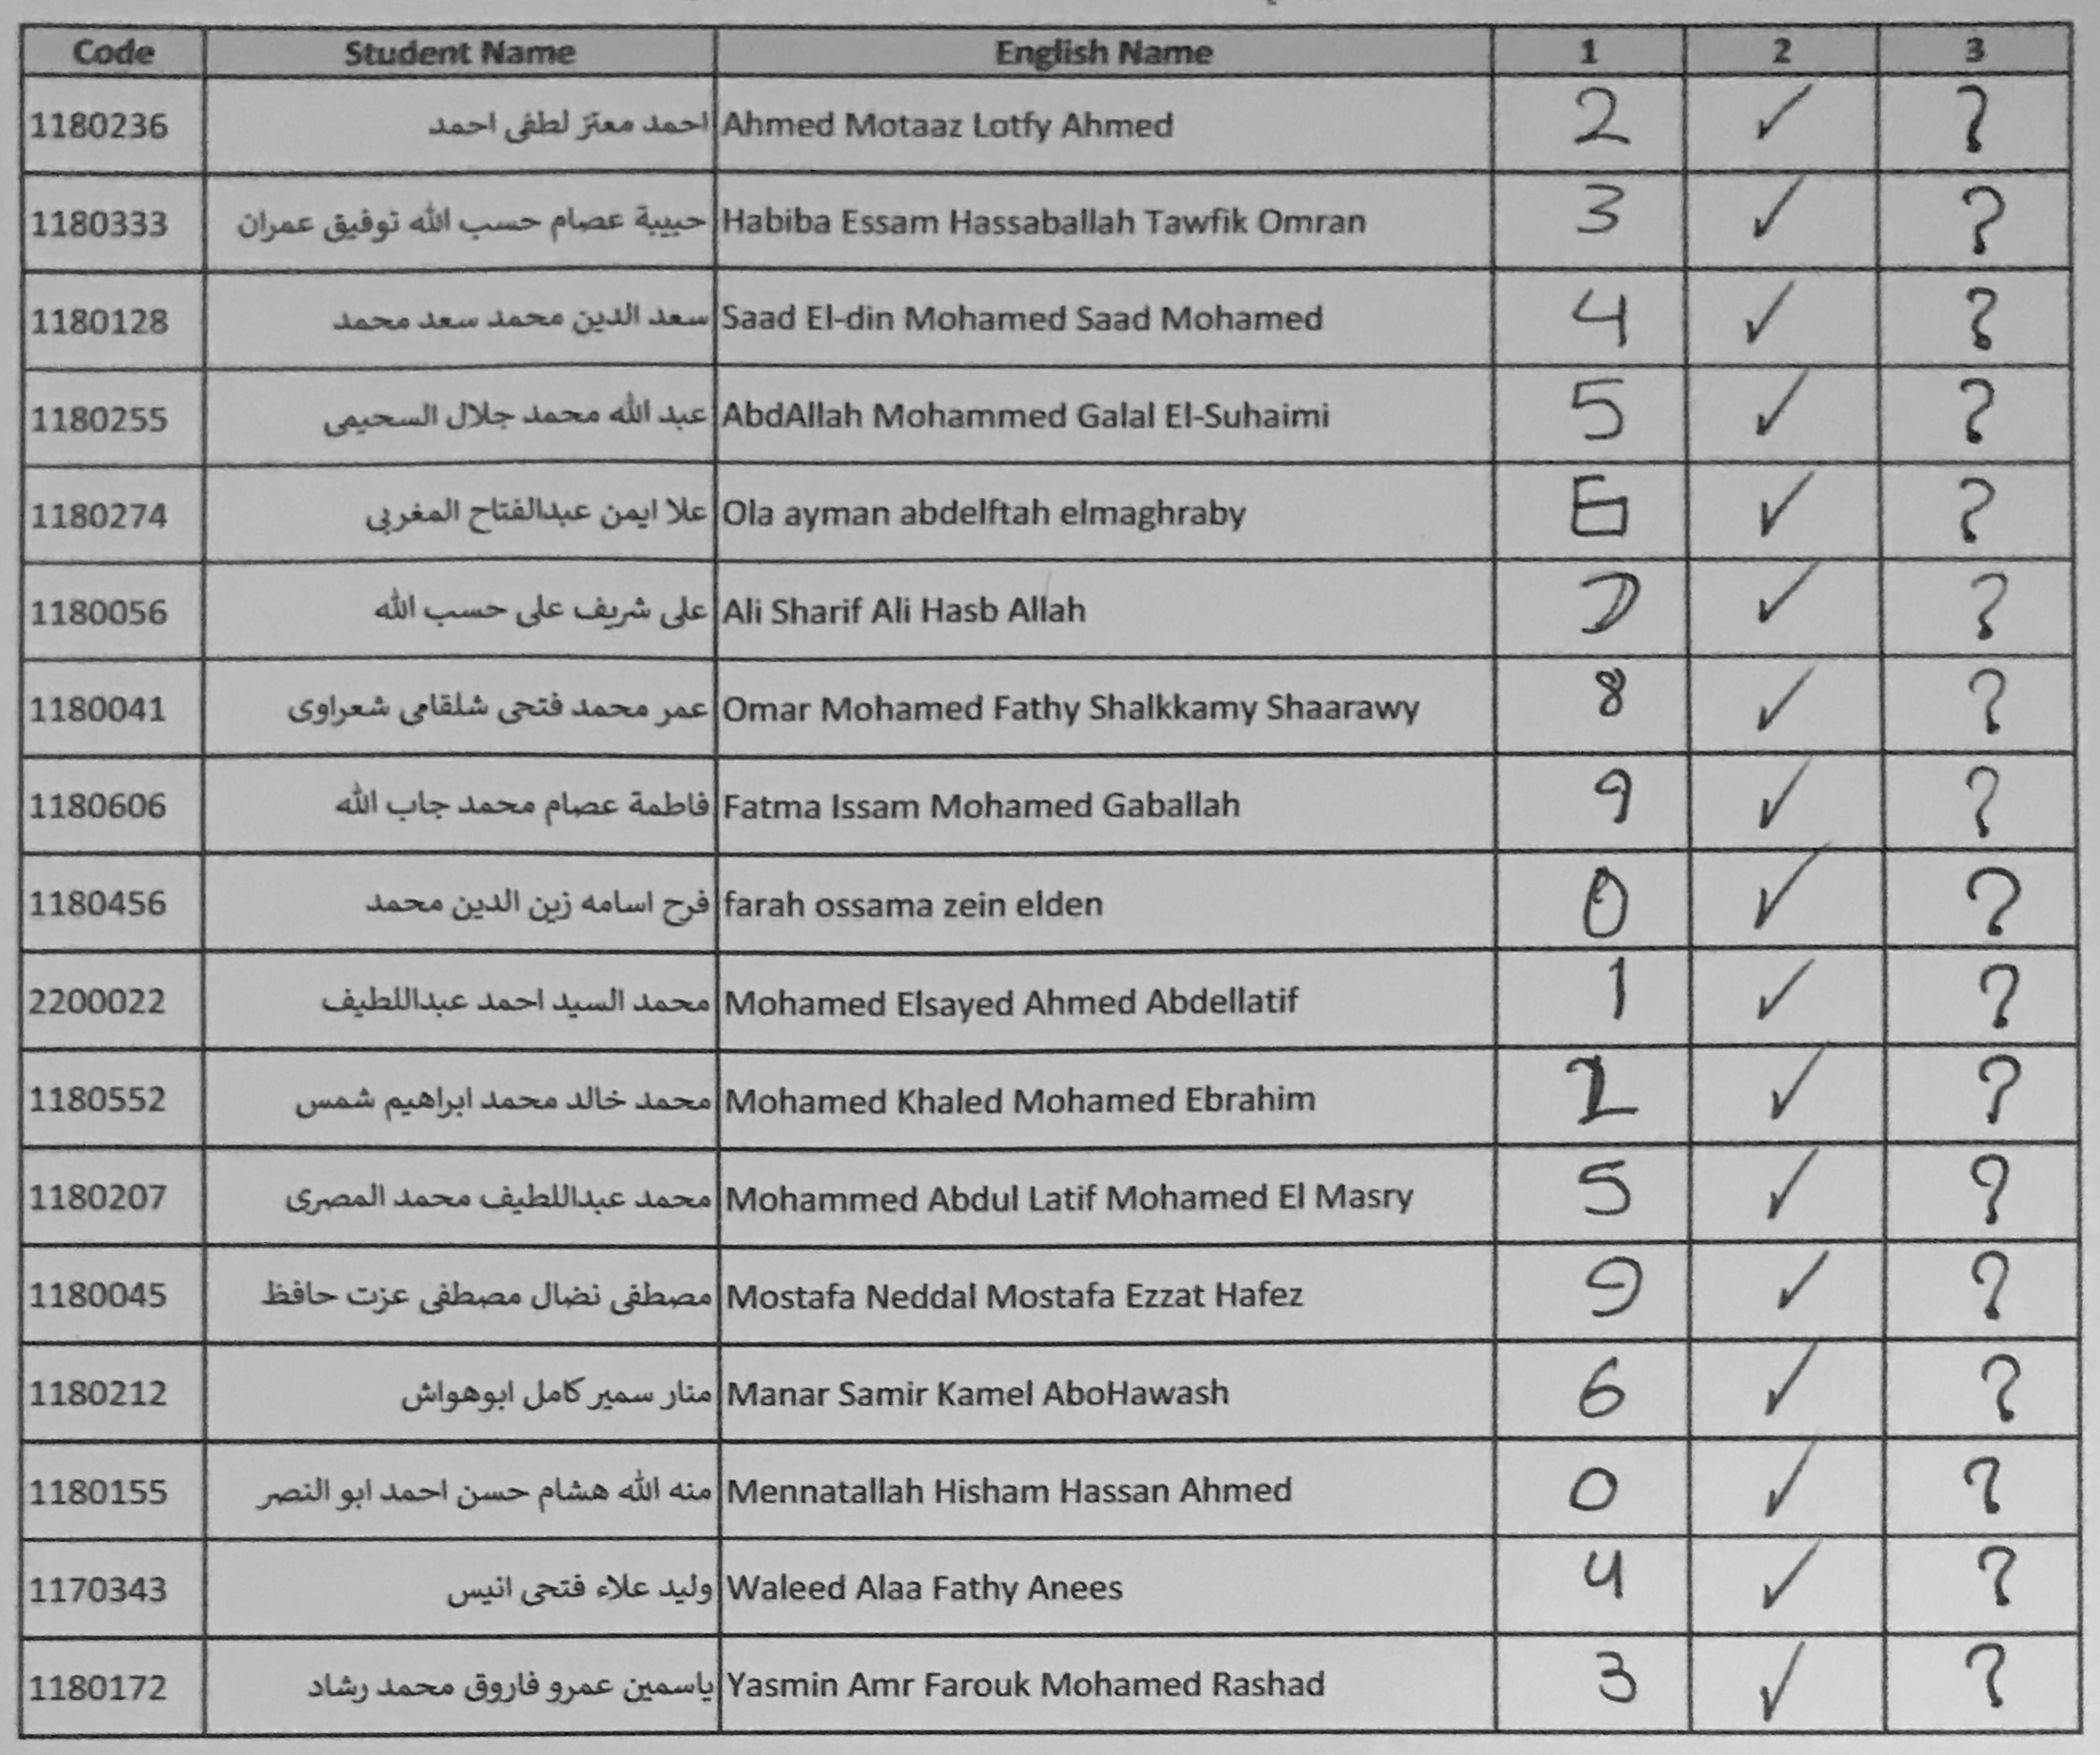 Code Student Name English Name 1 2 3
1180236 احمد معتز لطفى احمد Ahmed Motaaz Lotfy Ahmed 2 ✓ ?
1180333 حبيبة عصام حسب الله توفيق عمران Habiba Essam Hassaballah Tawfik Omran 3 ✓ ?
1180128 سعد الدين محمد سعد محمد Saad El-din Mohamed Saad Mohamed 4 ✓ ?
1180255 عبد الله محمد جلال السحيمى AbdAllah Mohammed Galal El-Suhaimi 5 ✓ ?
1180274 علا ايمن عبدالفتاح المغربي Ola ayman abdelftah elmaghraby 6 ✓ ?
1180056 على شريف على حسب الله Ali Sharif Ali Hasb Allah ✓ ?
1180041 عمر محمد فتحى شلقامى شعراوى Omar Mohamed Fathy Shalkkamy Shaarawy 8 ✓ ?
1180606 فاطمة عصام محمد جاب الله Fatma Issam Mohamed Gaballah 9 ✓ ?
1180456 فرح اسامه زين الدين محمد farah ossama zein elden 0 ✓ ?
2200022 محمد السيد احمد عبداللطيف Mohamed Elsayed Ahmed Abdellatif 1 ✓ ?
1180552 محمد خالد محمد ابراهيم شمس Mohamed Khaled Mohamed Ebrahim 2 ✓ ?
1180207 محمد عبداللطيف محمد المصرى Mohammed Abdul Latif Mohamed El Masry 5 ✓ ?
1180045 مصطفى نضال مصطفى عزت حافظ Mostafa Neddal Mostafa Ezzat Hafez 9 ✓ ?
1180212 منار سمير كامل ابوهواش Manar Samir Kamel AboHawash 6 ✓ ?
1180155 منه الله هشام حسن احمد ابو النصر Mennatallah Hisham Hassan Ahmed 0 ✓ ?
1170343 وليد علاء فتحى انيس Waleed Alaa Fathy Anees 4 ✓ ?
1180172 ياسمين عمرو فاروق محمد رشاد Yasmin Amr Farouk Mohamed Rashad 3 ✓ ?